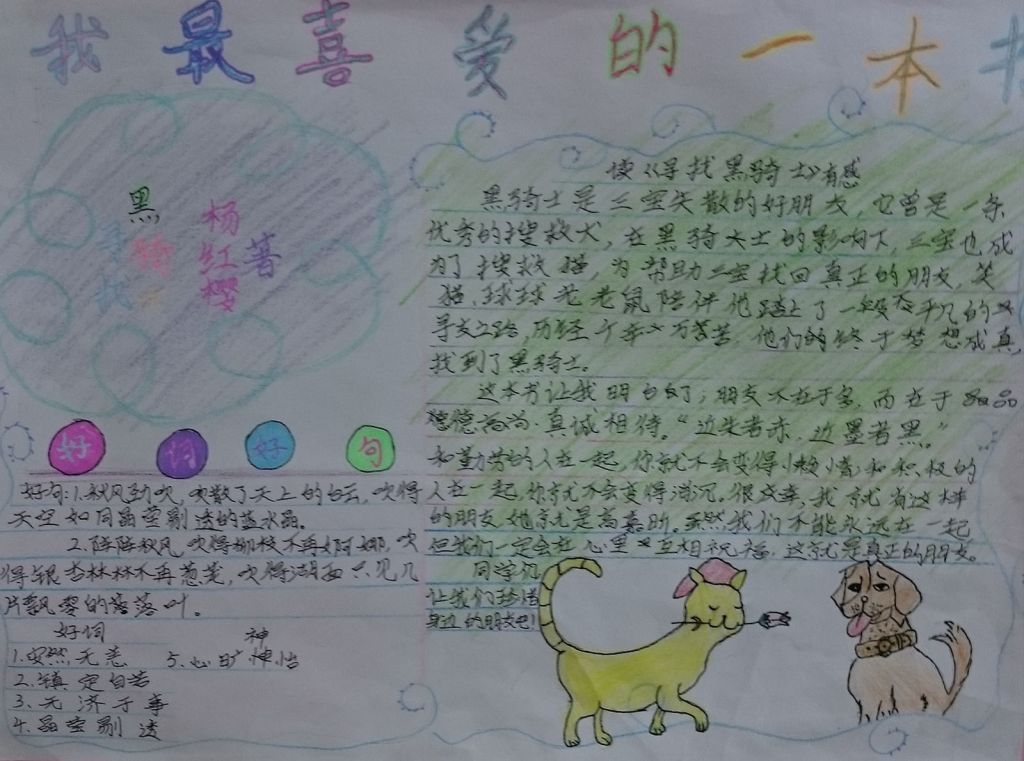 我最喜爱的一本书
寻找
黑骑士
杨红樱
著
好词好句
好句:1.秋风劲吹,吹散了天上的白云,吹得
天空如同晶莹剔透的蓝水晶。
2.阵阵秋风,吹得柳枝不再婀娜,吹
得银杏林林不再葱茏,吹得湖面只见几
片飘零的落叶。
好词
1.安然无恙
5.心旷神怡
2.镇定自若
3.无济于事
4.晶莹剔透
读《寻找黑骑士》有感
黑骑士是三宝失散的好朋友,它曾是一条
优秀的搜救犬,在黑骑士的影响下,三宝也成
为了搜救猫,为帮助三宝找回真正的朋友,笑
猫、球球老老鼠陪伴他踏上了一段不平凡的
寻友之路,历经千辛万苦,他们的终于梦想成真,
找到了黑骑士。
这本书让我明白了,朋友不在于多,而在于品
德高尚.真诚相待。“近朱者赤,近墨者黑。”
和勤劳的人在一起,你就不会变得懒惰,和积极的
人在一起,你就不会变得消沉。很庆幸,我就有这样
的朋友,她就是高嘉昕。虽然我们不能永远在一起
但我们一定会在心里互相祝福,这就是真正的朋友。
同学们
让我们珍惜
身边的朋友吧!